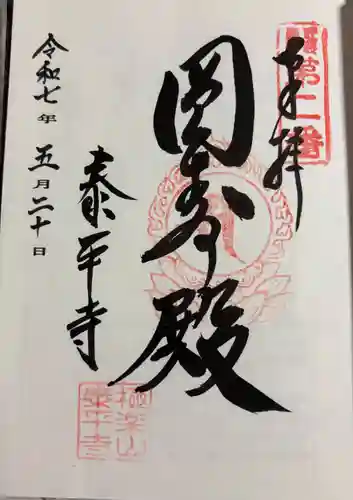 奉拝
第二番
圓寿殿
泰平寺
極楽山
泰平寺
令和七年 五月二十日